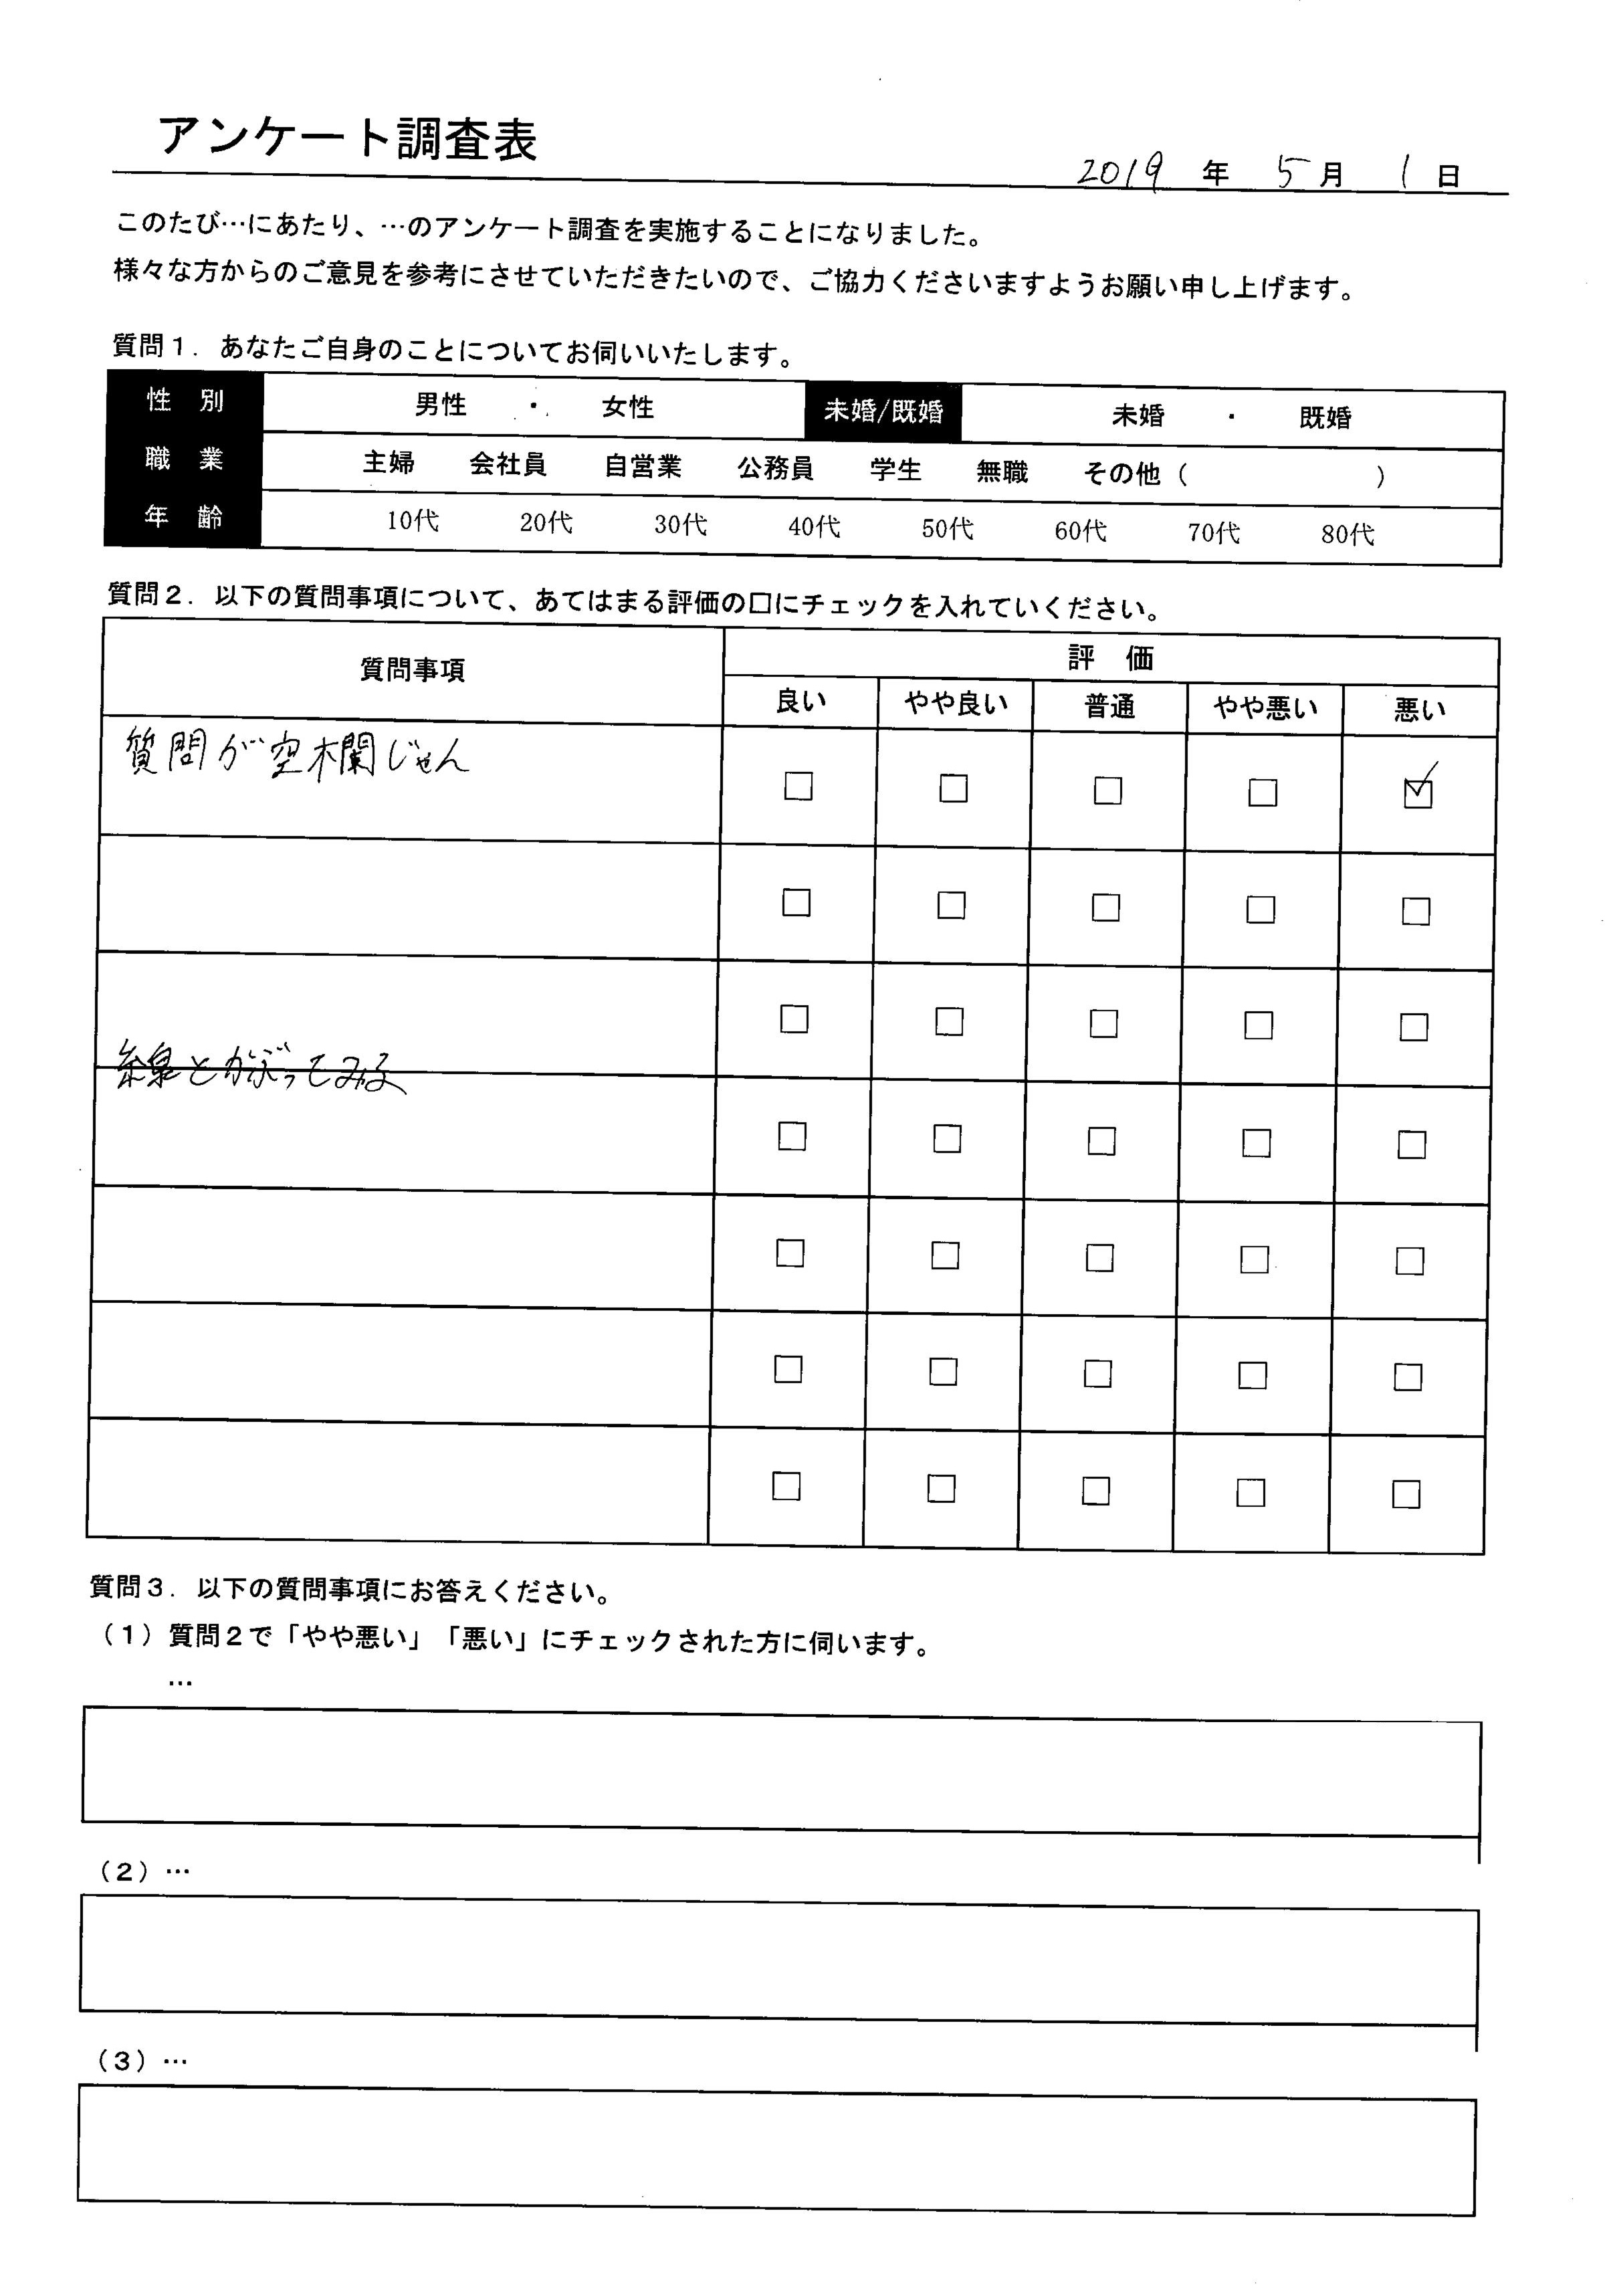 アンケート調査表
2019 年 5 月 1 日
このたび…にあたり、…のアンケート調査を実施することになりました。
様々な方からのご意見を参考にさせていただきたいので、ご協力くださいますようお願い申し上げます。
質問１．あなたご自身のことについてお伺いいたします。
性 別 男性 ・ 女性 未婚/既婚 未婚 ・ 既婚
職 業 主婦 会社員 自営業 公務員 学生 無職 その他（ ）
年 齢 10代 20代 30代 40代 50代 60代 70代 80代
質問２．以下の質問事項について、あてはまる評価の口にチェックを入れていください。
質問事項 評 価
良い やや良い 普通 やや悪い 悪い
質問が空欄じゃん □ □ □ □ ☑
□ □ □ □ □
□ □ □ □ □
線とかぶってみる
□ □ □ □ □
□ □ □ □ □
□ □ □ □ □
□ □ □ □ □
質問３．以下の質問事項にお答えください。
（１）質問２で「やや悪い」「悪い」にチェックされた方に伺います。
…
（２）…
（３）…